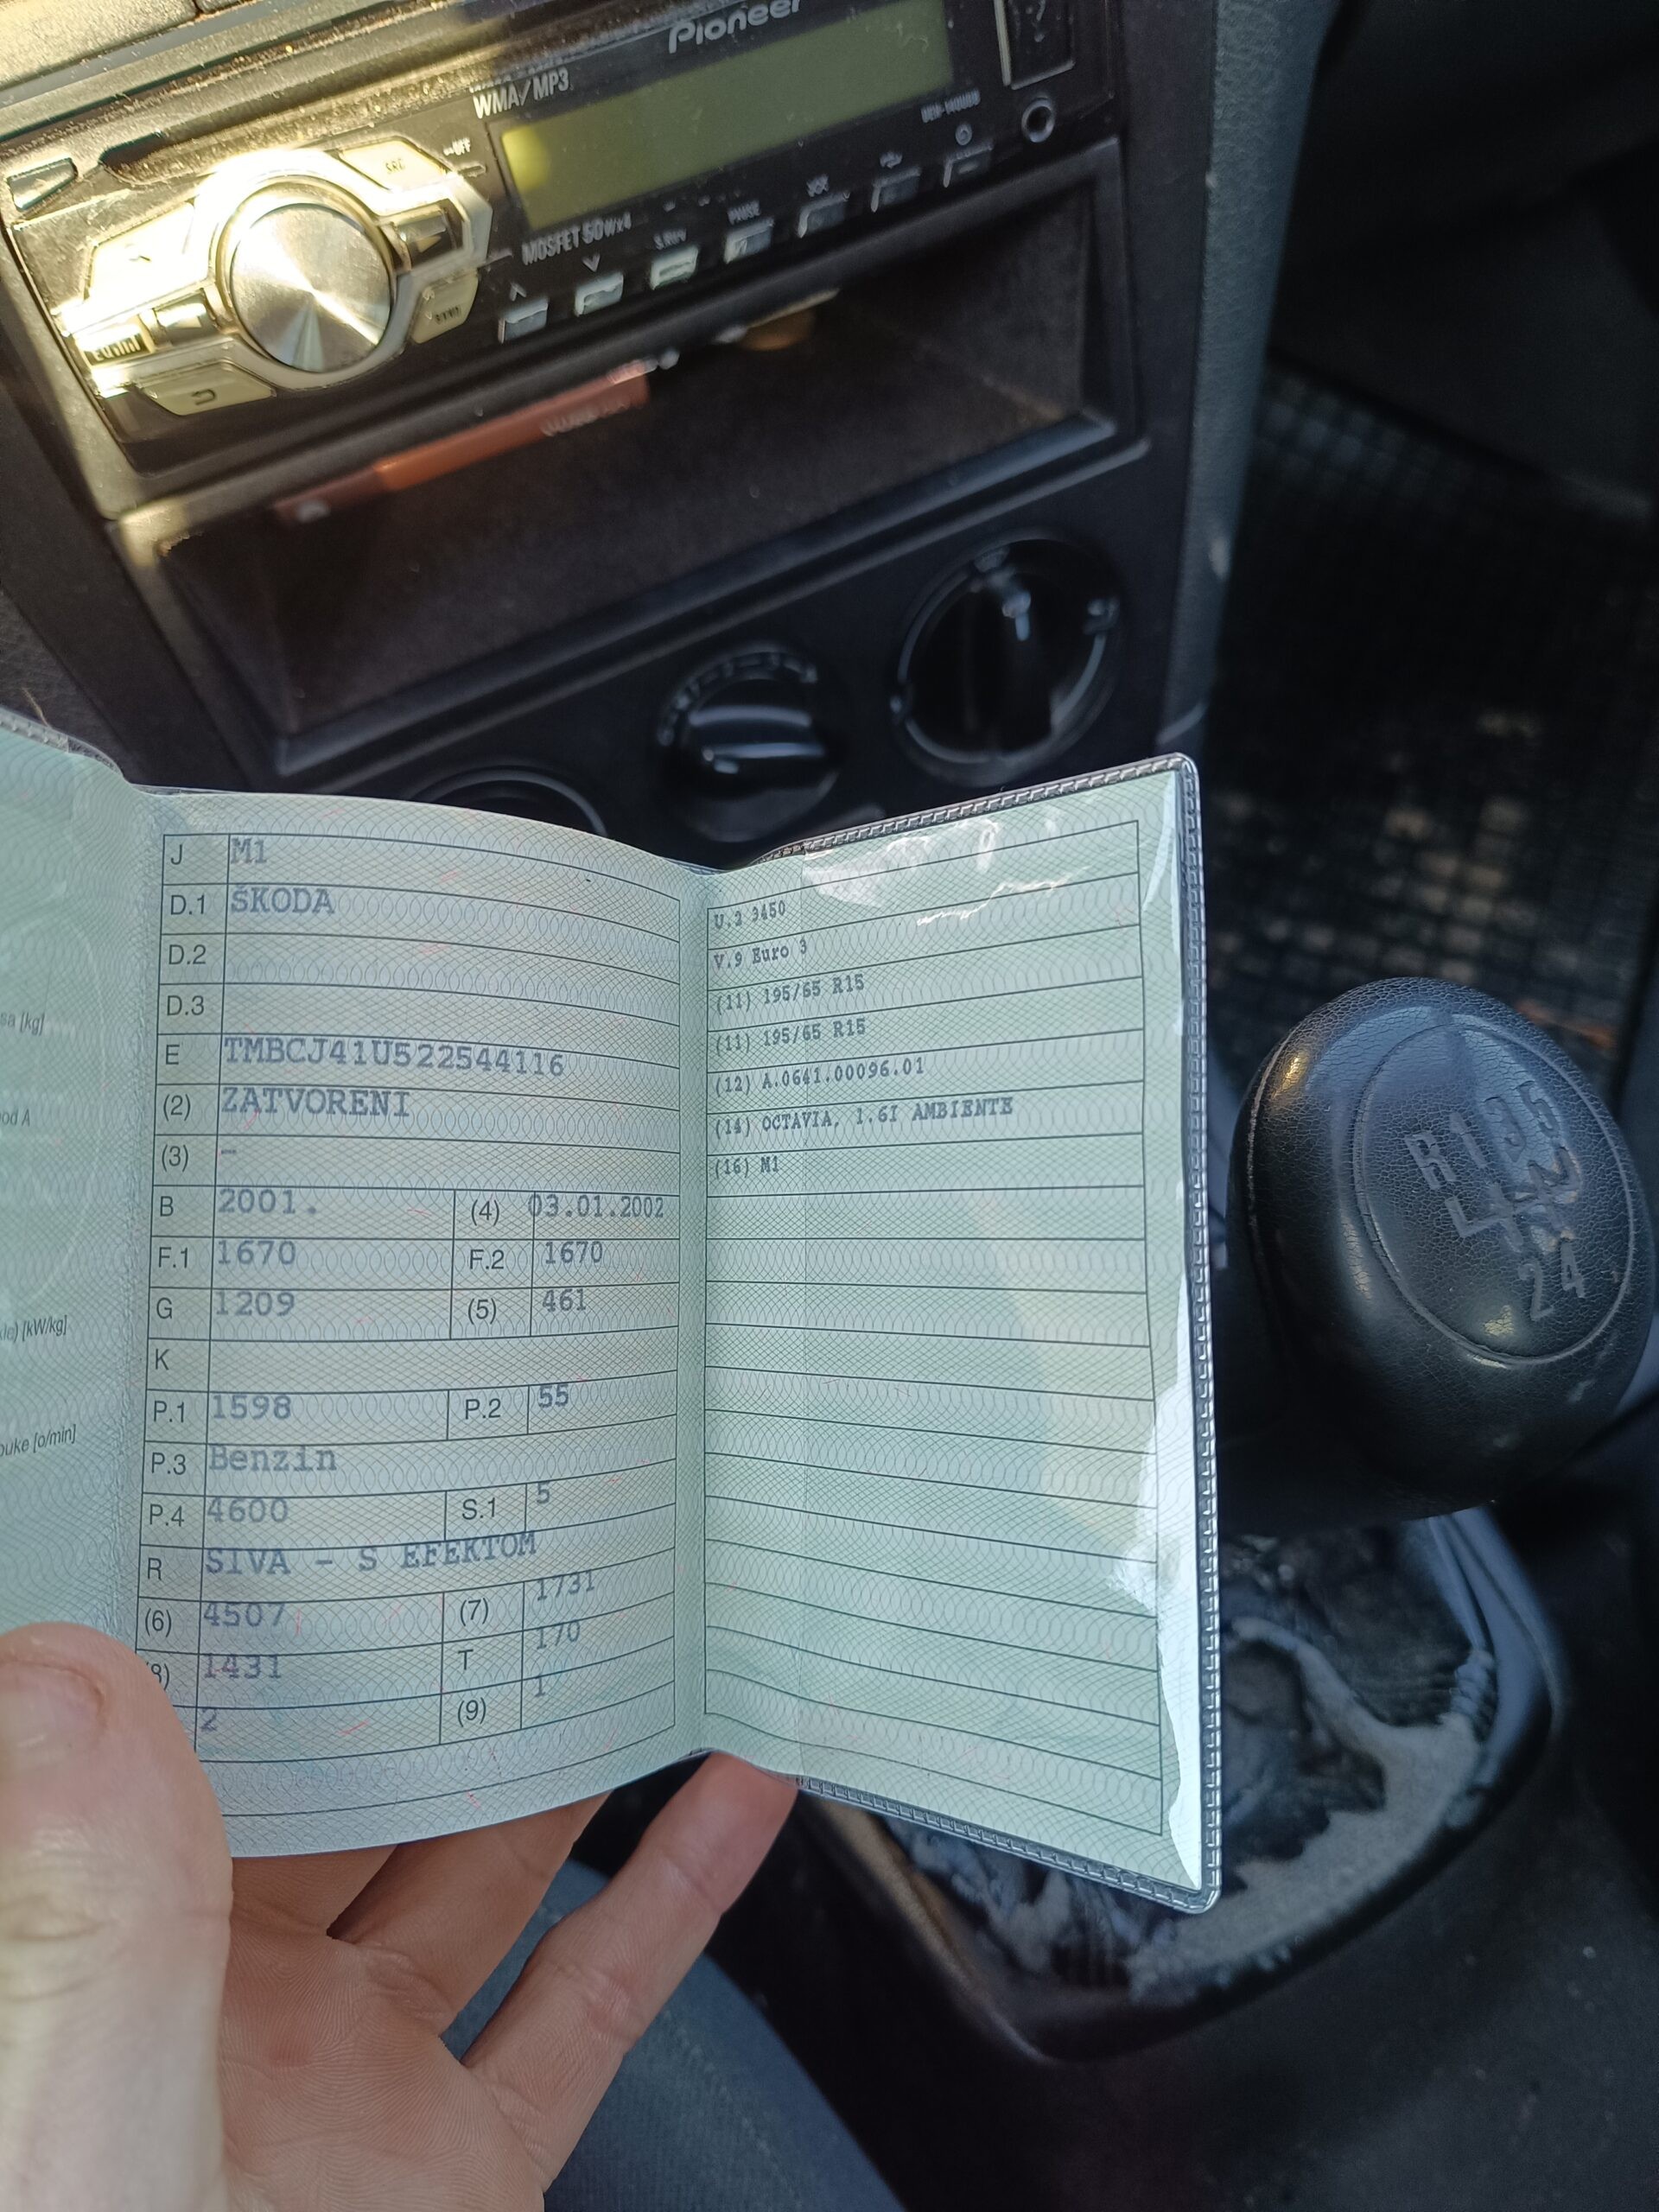 Pioneer
WMA/MP3
SRC
OFF
MOSFET 50Wx4
PAUSE
sa [kg]
od A
[kW/kg]
[o/min]
J M1
D.1 ŠKODA
D.2
D.3
E TMBCJ41U522544116
(2) ZATVORENI
(3) –
B 2001. (4) 03.01.2002
F.1 1670 F.2 1670
G 1209 (5) 461
K
P.1 1598 P.2 55
P.3 Benzin
P.4 4600 S.1 5
R SIVA - S EFEKTOM
(6) 4507 (7) 1731
(8) 1431 T 170
2 (9) 1
U.2 3450
V.9 Euro 3
(11) 195/65 R15
(11) 195/65 R15
(12) A.0641.00096.01
(14) OCTAVIA, 1.6I AMBIENTE
(16) M1
R 1 3 5
2 4